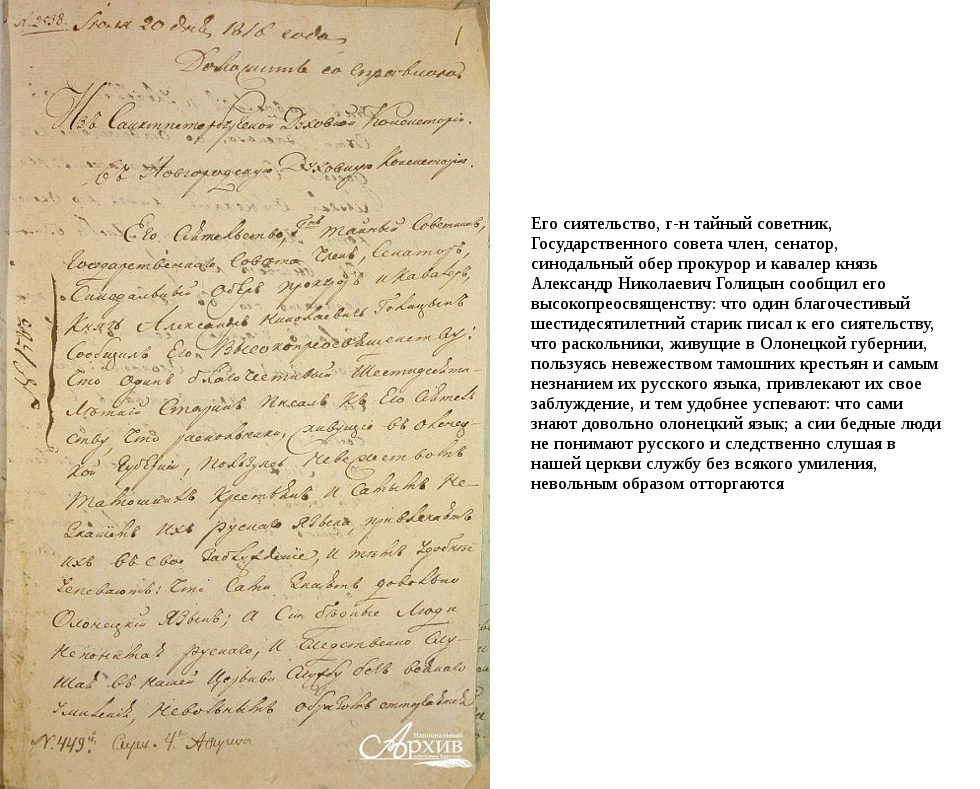 № 2538.
Июля 20 дня 1816 года
1
Доложить со справкою
Изъ Санктпетербургской Духовной Консисторіи.
въ Новгородскую Духовную Консисторію.
Его Сіятельство, Гнъ Тайный Советникъ,
Государственнаго Совѣта Членъ, Сенаторъ,
Синодальный Оберъ прокуръ и Кавалеръ,
Князь Александръ Николаевичь Голицынъ
Сообщилъ Его Высокопреосвященству:
Что одинъ благочестивый Шестидесяти-
лѣтній Старикъ писалъ къ Его Сіятель
ству, Что раскольники, живущіе въ Олонец-
кой Губерніи, пользуясь невежествомъ
тамошнихъ крестьянъ и самымъ не-
знаніемъ ихъ рускаго языка, привлекаютъ
ихъ въ свое заблужденіе, и тѣмъ удобнѣе
успеваютъ: Что сами знаютъ довольно
Олонецкій языкъ; а Сіи бѣдные люди
непонимая рускаго, и следственно слу-
шая въ нашей Церкви службу безъ всякаго
умиленія, невольнымъ образомъ отторгаются
№ 449й Слуш. 4го Августа
Национальный
Архив
Республики Карелия
Его сиятельство, г-н тайный советник,
Государственного совета член, сенатор,
синодальный обер прокурор и кавалер князь
Александр Николаевич Голицын сообщил его
высокопреосвященству: что один благочестивый
шестидесятилетний старик писал к его сиятельству,
что раскольники, живущие в Олонецкой губернии,
пользуясь невежеством тамошних крестьян и самым
незнанием их русского языка, привлекают их свое
заблуждение, и тем удобнее успевают: что сами
знают довольно олонецкий язык; а сии бедные люди
не понимают русского и следственно слушая в
нашей церкви службу без всякого умиления,
невольным образом отторгаются